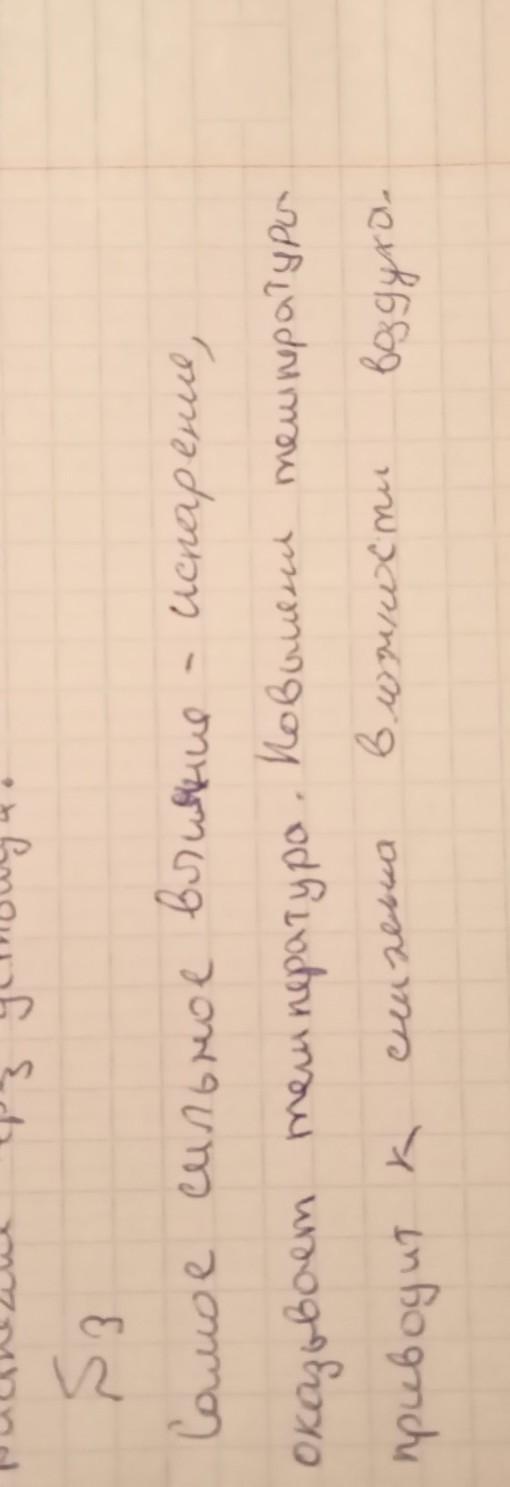 растения чрз устьица.
№3
Самое сильное влияние - испарение,
оказывает температура. Повышени температуры
приводит к снижена влжности воздуха.